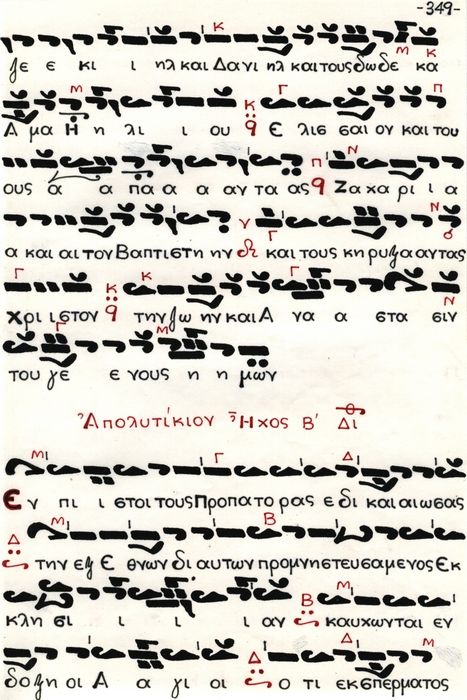 -349-
ζε ε κι ι ηλ και Δα νι ηλ και τους δω δε κα
Α μα Η η λι ι ου Ε λισ σαι ον και του
ους α α πα α α αν τα ας Ζα χα ρι ι α
α και αι τον Βαπτιστη ην και τους κη ρυξα αντας
χρι ι στον την ζω ην και Α να α στα σιν
του γε ε νους η η μων
Ἀπολυτίκιον Ἦχος Β΄ Δι
Εν πι ι στοι τους Προπατο ρας ε δι και αι ωσας
την εξ Ε θνων δι αυτων προμνηστευσαμενος Εκ
κλη σι ι ι ι αν καυχωνται εν
δοξη οι Α α γι οι ο τι εκ σπερματος